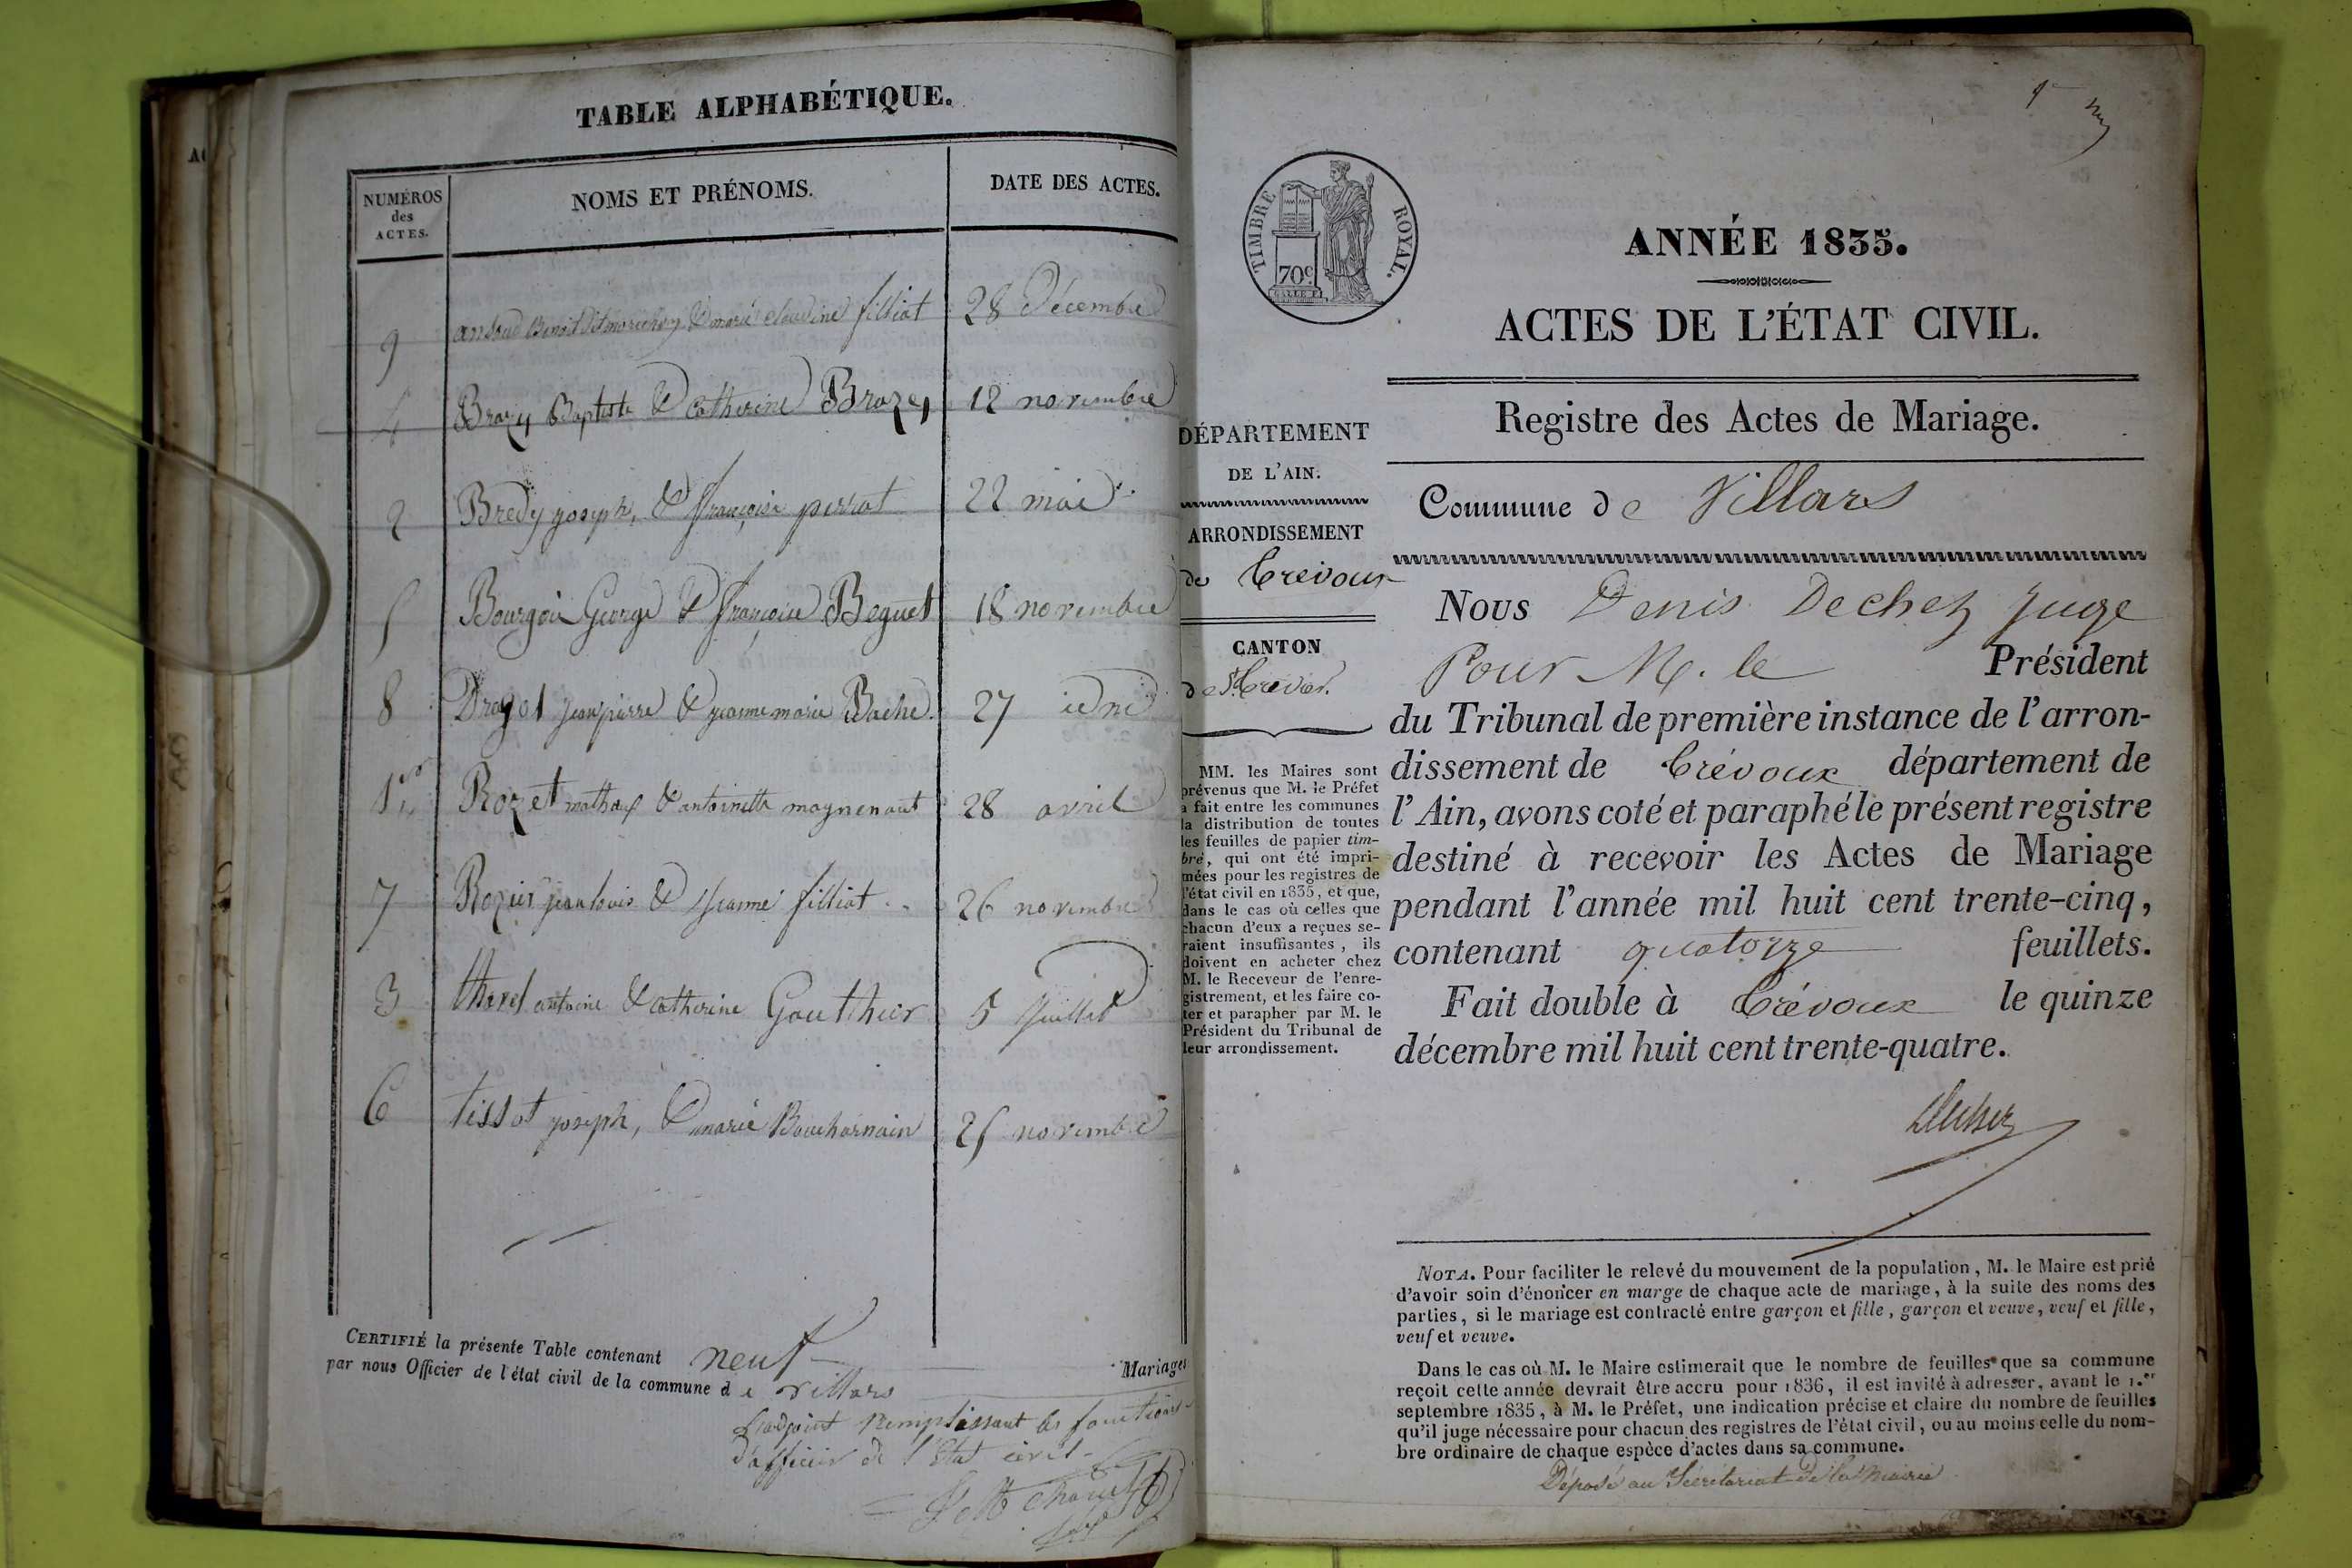 TABLE ALPHABÉTIQUE.
NUMÉROS
des
ACTES.
NOMS ET PRÉNOMS.
DATE DES ACTES.
9 Benoit & marie claudine filliat 28 Décembre
4 Brazy Baptiste & Catherine Brazey 12 novembre
2 Bredy joseph, & françoise perrat 22 mai
5 Bourgois George & françoise Beguet 18 novembre
8 jeanpierre & jeanne marie 27 idem
1er Rozet mathieux & antoinette magnenaut 28 avril
7 Rozier jeanlouis & jeanne filliat 26 novembre
3 thevet antoine & catherine Gauthier 5 Juillet
6 tissot joseph, & marie Boucharnain 25 novembre
CERTIFIÉ la présente Table contenant neuf Mariages
par nous Officier de l'état civil de la commune de villars
L'adjoint Remplissant les fonctions
d'officier de l'Etat civil
1er
TIMBRE ROYAL.
70c
ANNÉE 1835.
ACTES DE L'ÉTAT CIVIL.
Registre des Actes de Mariage.
Commune de Villars
DÉPARTEMENT
DE L'AIN.
ARRONDISSEMENT
de Trevoux
CANTON
de St Trivier.
MM. les Maires sont
prévenus que M. le Préfet
a fait entre les communes
la distribution de toutes
les feuilles de papier tim-
bré, qui ont été impri-
mées pour les registres de
l'état civil en 1835, et que,
dans le cas où celles que
chacun d'eux a reçues se-
raient insuffisantes, ils
doivent en acheter chez
M. le Receveur de l'enre-
gistrement, et les faire co-
ter et parapher par M. le
Président du Tribunal de
leur arrondissement.
Nous Denis Dechez Juge
Pour M. le Président
du Tribunal de première instance de l'arron-
dissement de Trévoux département de
l'Ain, avons coté et paraphé le présent registre
destiné à recevoir les Actes de Mariage
pendant l'année mil huit cent trente-cinq,
contenant quatorze feuillets.
Fait double à Trévoux le quinze
décembre mil huit cent trente-quatre.
Dechez
NOTA. Pour faciliter le relevé du mouvement de la population, M. le Maire est prié
d'avoir soin d'énoncer en marge de chaque acte de mariage, à la suite des noms des
parties, si le mariage est contracté entre garçon et fille, garçon et veuve, veuf et fille,
veuf et veuve.
Dans le cas où M. le Maire estimerait que le nombre de feuilles que sa commune
reçoit cette année devrait être accru pour 1836, il est invité à adresser, avant le 1.er
septembre 1835, à M. le Préfet, une indication précise et claire du nombre de feuilles
qu'il juge nécessaire pour chacun des registres de l'état civil, ou au moins celle du nom-
bre ordinaire de chaque espèce d'actes dans sa commune.
Déposé au Secrétariat de la Mairie